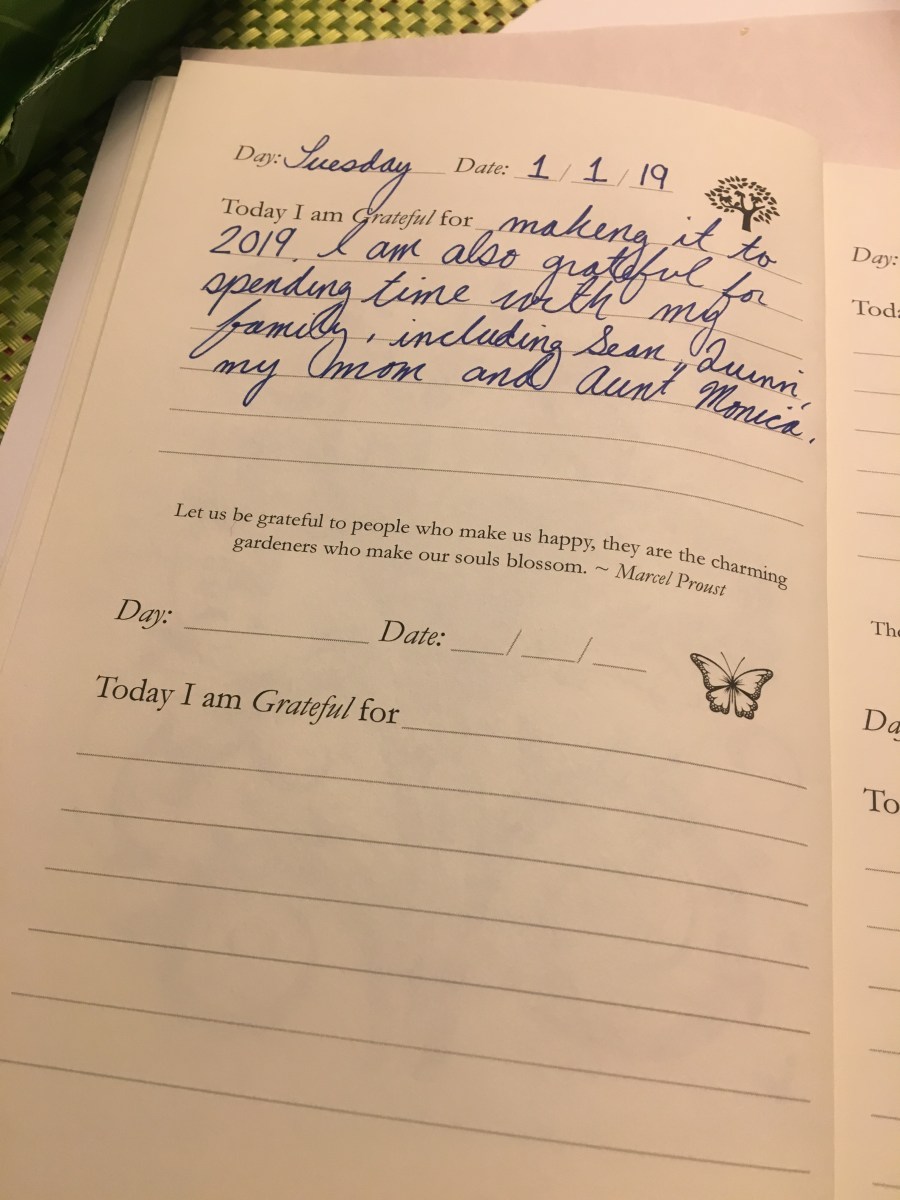 Day: Tuesday Date: 1 / 1 / 19
Today I am Grateful for making it to
2019. I am also grateful for
spending time with my
family, including Sean, Quinn,
my mom and Aunt Monica.
Let us be grateful to people who make us happy, they are the charming
gardeners who make our souls blossom. ~ Marcel Proust
Day: ____ Date: __/__/__
Today I am Grateful for
Day: